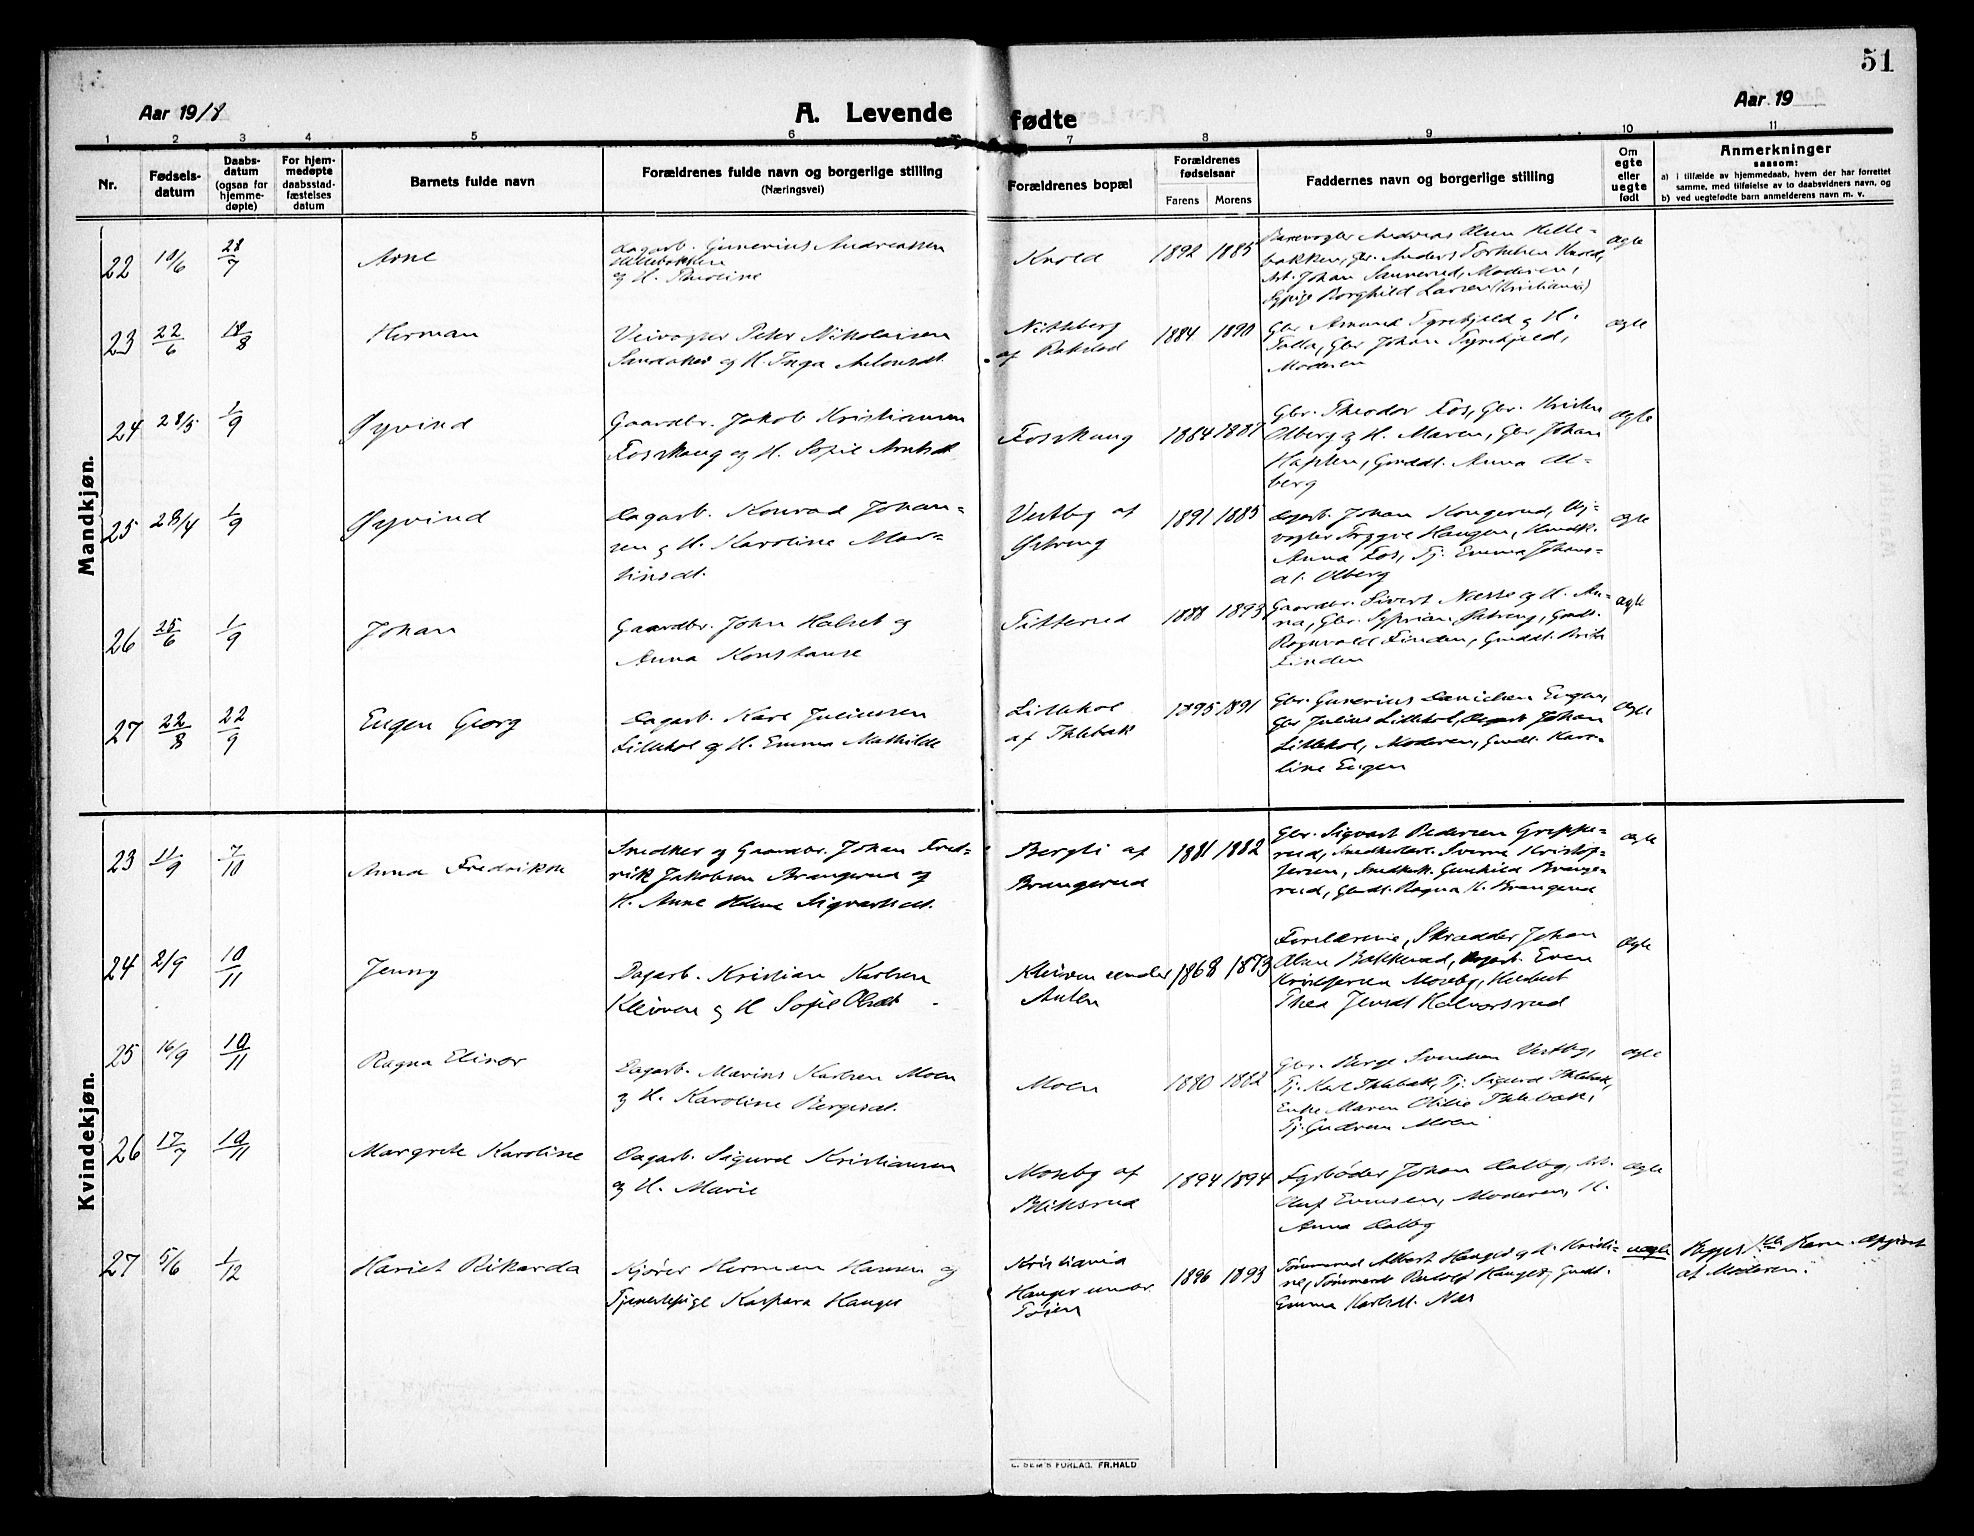 51
Aar 1918
A. Levende fødte
Aar 19
1 2 3 4 5 6 7 8 9 10 11
Nr.
Fødsels-
datum
Daabs-
datum
(ogsaa for
hjemme-
døpte)
For hjem-
medøpte
daabsstad-
fæstelses
datum
Barnets fulde navn
Forældrenes fulde navn og borgerlige stilling
(Næringsvei)
Forældrenes bopæl
Forældrenes
fødselsaar
Farens Morens
Faddernes navn og borgerlige stilling
Om
egte
eller
uegte
født
Anmerkninger
saasom:
a) i tilfælde av hjemmedaab, hvem der har forrettet
samme, med tilføielse av to daabsvidners navn, og
b) ved uegtefødte barn anmelderens navn m. v.
Mandkjøn.
22 10/6 28/7 Arne
Dagarb. Gunerius Andreassen
Hellebakken
og H. Pauline
Knold
1892 1885
Andreas Olsen Helle-
bakken, Gbr. Anders Knold,
Arb. Johan Sannerud, Moderen,
Borghild Larsen (Kristiania)
ægte
23 22/6 18/8 Herman
Veivogter Peter Nikolaisen
Sandaker og H. Inga
Nitteberg
af Rakstad
1884 1890
Gbr. Amund Tyrihjeld og H.
Gbr Johan Tyrihjeld,
Moderen
ægte
24 28/5 1/9 Øyvind
Gaardbr. Jakob Kristiansen
Fosshaug og H. Sofie
Fosshaug
1884 1887
Gbr. Theodor Fos, Gbr. Kristen
Olberg og H. Maren, Gbr Johan
Gmdt. Anna Ol-
berg
ægte
25 28/4 1/9 Øyvind
Dagarb. Konrad Johan-
sen og H. Karoline Mar-
tinsdt.
Vestby af
Østreng
1891 1885
Dagarb. Johan Kongerud, Vei-
vogter Trygve Haugen, Hmdk.
Anna Fos, Tj. Emma Johans-
dt. Olberg
ægte
26 25/6 1/9 Johan
Gaardbr. John Halset og
Anna Konstanse
Titterud
1888 1893
Gaardbr. Sivert Næsse og H. An-
na, Gbr. Syprian Østreng, Gmds.
Rognvald Finden, Gmdt.
Finden
ægte
27 22/8 22/9 Eugen Georg
Dagarb. Karl Juliussen
Lillehol og H. Emma Mathilde
Lillehol
af Ihlebæk
1895 1891
Gbr. Gunerius Danielsen Eugen,
Gbr Julius Lillehol, Dagarb Johan
Lillehol, Moderen, Gmdt. Karo-
line Eugen
ægte
Kvindekjøn.
23 11/9 7/10 Anna Fredrikke
Snedker og Gaardbr. Johan Fred-
rik Jakobsen Brangerud og
H. Anne Helene Sigvartsdt.
Bergli af
Brangerud
1881 1882
Gbr. Sigvart Pedersen Greppe-
rud, Sverre Kristof-
fersen, Gunhild Brange-
rud, Gmdt. Ragna H. Brangerud
ægte
24 2/9 10/11 Jenny
Dagarb. Kristian Karlsen
Kleiven og H Sofie Olsdt
Kleiven under
Anten
1868 1873
Forældrene, Skrædder Johan
Olsen Bakkerud, Dagarb. Even
Kristofersen Moseby,
Thea Jensdt Halvorsrud
ægte
25 16/9 10/11 Ragna Elinor
Dagarb. Marius Karlsen Moen
og H. Karoline Bergersdt.
Moen
1880 1882
Gbr. Berge Svendsen Vestby,
Tj. Karl Ihlebæk, Tj. Sigurd Ihlebæk,
Enke Maren Otilie Ihlebæk,
Tj. Gudrun Moen
ægte
26 17/7 10/11 Margrete Karoline
Dagarb. Sigurd Kristiansen
og H. Marie
Moseby af
Bliksrud
1894 1894
Fyrbøder Johan Dalby, Arb.
Olaf Evensen, Moderen, H.
Anna Dalby
ægte
27 5/6 1/12 Hariet Rikarda
Kjører Herman Hansen og
Tjenestepige Kaspara Hauger
Kristiania
Hauger under
Toien
1896 1893
Tømmermd Albert Hauger og H. Kristi-
ne, Tømmermd Hauger, Gmdt.
Emma Karlsdt. Næs
uægte
Begges 1ste Barn. Opgivet
af Moderen.
E. SEM'S FORLAG. FR.HALD